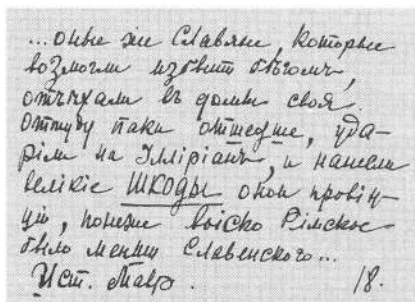 ...оные же Славяне, которые
возмогли избыть бѣгомъ,
отъѣхали въ домы своя.
Оттуду паки отшедше, уда-
ріли на Ілліріанъ, и нанесли
велікіе ШКОДЫ оной провін-
ціі, понеже воіско Рімское
было менши Славенского...
Ист. Мавр. 18.